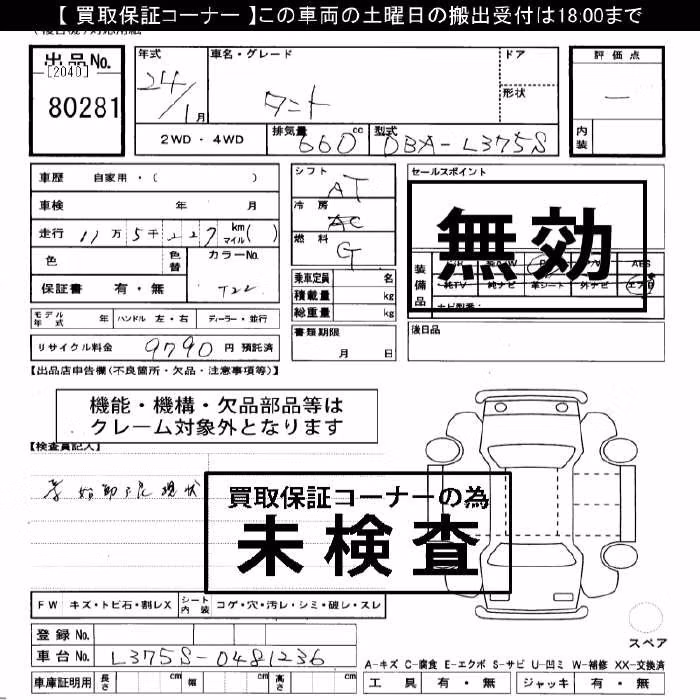 【 買取保証コーナー 】この車両の土曜日の搬出受付は18:00まで
出品No.
[2040]
80281
年式
24/1月
車名・グレード
タント
ドア
形状
評価点
―
内装
2WD・4WD
排気量 660 cc
型式 DBA-L375S
車歴 自家用・( )
車検 年 月
走行 11万5千227 km マイル( )
色
色替
カラーNo.
T22
保証書 有・無
シフト AT
冷房 AC
燃料 G
乗車定員 名
積載量 kg
総重量 kg
書類期限
月 日
セールスポイント
無効
装備品
ABS
純TV 純ナビ 革シート 外ナビ エアB
ナビ型番:
後日品
モデル年式 年 ハンドル 左・右 ディーラー・並行
リサイクル料金 9790 円 預託済
【出品店申告欄(不良箇所・欠品・注意事項等)】
機能・機構・欠品部品等は
クレーム対象外となります
【検査員記入】
現状
買取保証コーナーの為
未検査
FW キズ・トビ石・割レX シート内装 コゲ・穴・汚レ・シミ・破レ・スレ
登録No.
車台No. L375S-0481236
車庫証明用 長さ cm 幅 cm 高さ cm
スペア
A-キズ C-腐食 E-エクボ S-サビ U-凹ミ W-補修 XX-交換済
工具 有・無 ジャッキ 有・無